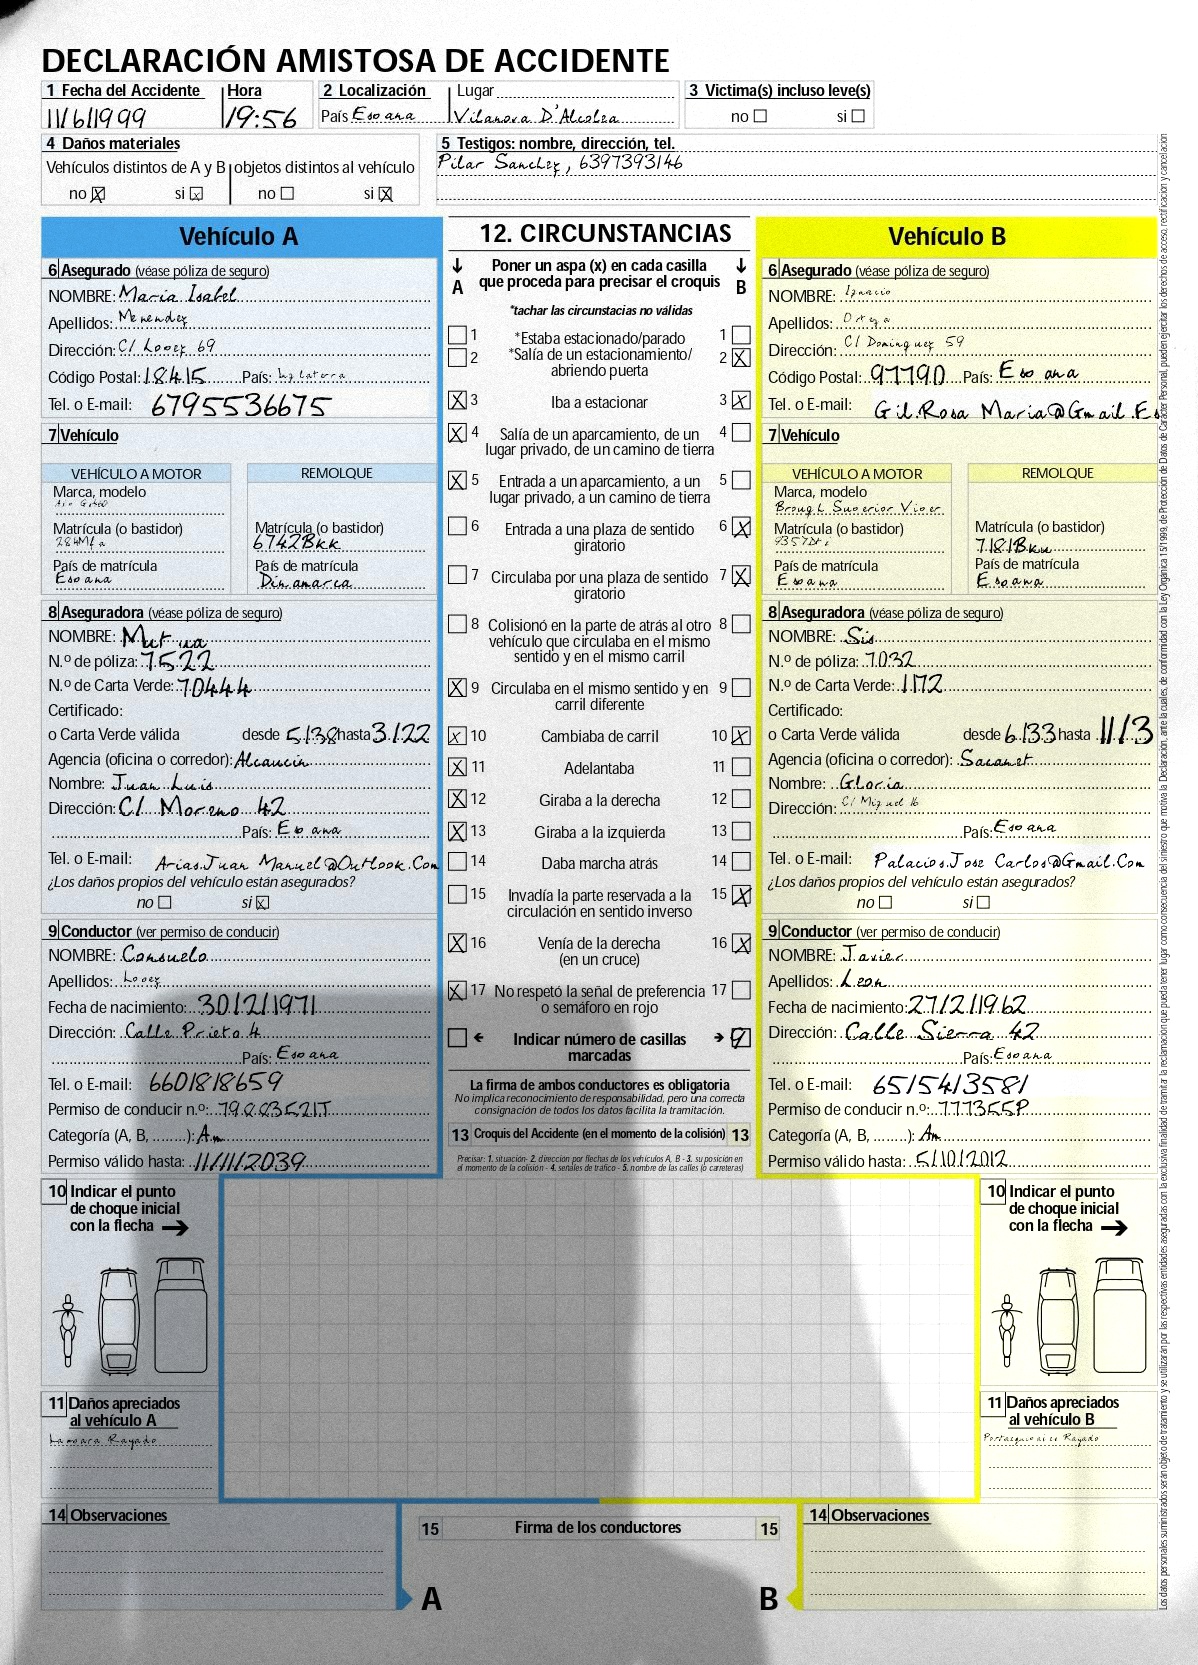 DECLARACIÓN AMISTOSA DE ACCIDENTE
1 Fecha del Accidente Hora 2 Localización Lugar 3 Victima(s) incluso leve(s)
11/6/1999 19:56 País Espana Vilanova D'Alcolea no si
4 Daños materiales 5 Testigos: nombre, dirección, tel.
Vehículos distintos de A y B objetos distintos al vehículo Pilar Sanchez, 6397393146
no X si X no si X
Vehículo A
6 Asegurado (véase póliza de seguro)
NOMBRE: Maria Isabel
Apellidos: Menendez
Dirección: C/ Lopez 69
Código Postal: 18415 País: Inglaterra
Tel. o E-mail: 6795536675
7 Vehículo
VEHÍCULO A MOTOR REMOLQUE
Marca, modelo
Matrícula (o bastidor) Matrícula (o bastidor)
6742Bkk
País de matrícula País de matrícula
Espana Dinamarca
8 Aseguradora (véase póliza de seguro)
NOMBRE: Mutua
N.º de póliza: 7522
N.º de Carta Verde: 70444
Certificado:
o Carta Verde válida desde 5/38 hasta 3/22
Agencia (oficina o corredor): Alcaucin
Nombre: Juan Luis
Dirección: C/ Moreno 42
País: Espana
Tel. o E-mail: Arias.Juan Manuel@Outlook.Com
¿Los daños propios del vehículo están asegurados?
no si X
9 Conductor (ver permiso de conducir)
NOMBRE: Consuelo
Apellidos: Lopez
Fecha de nacimiento: 30/2/1971
Dirección: Calle Prieto 4
País: Espana
Tel. o E-mail: 6601818659
Permiso de conducir n.º: 79003521T
Categoría (A, B, ........): Am
Permiso válido hasta: 11/11/2039
12. CIRCUNSTANCIAS
A Poner un aspa (x) en cada casilla que proceda para precisar el croquis B
*tachar las circunstacias no válidas
1 *Estaba estacionado/parado 1
2 *Salía de un estacionamiento/ 2 X
abriendo puerta
X 3 Iba a estacionar 3 X
X 4 Salía de un aparcamiento, de un 4
lugar privado, de un camino de tierra
X 5 Entrada a un aparcamiento, a un 5
lugar privado, a un camino de tierra
6 Entrada a una plaza de sentido 6 X
giratorio
7 Circulaba por una plaza de sentido 7 X
giratorio
8 Colisionó en la parte de atrás al otro 8
vehículo que circulaba en el mismo
sentido y en el mismo carril
X 9 Circulaba en el mismo sentido y en 9
carril diferente
X 10 Cambiaba de carril 10 X
X 11 Adelantaba 11
X 12 Giraba a la derecha 12
X 13 Giraba a la izquierda 13
14 Daba marcha atrás 14
15 Invadía la parte reservada a la 15 X
circulación en sentido inverso
X 16 Venía de la derecha 16 X
(en un cruce)
X 17 No respetó la señal de preferencia 17
o semáforo en rojo
Indicar número de casillas 9
marcadas
La firma de ambos conductores es obligatoria
No implica reconocimiento de responsabilidad, pero una correcta
consignación de todos los datos facilita la tramitación.
13 Croquis del Accidente (en el momento de la colisión) 13
Precisar: 1. situación- 2. dirección por flechas de los vehículos A, B - 3. su posición en
el momento de la colisión - 4. señales de tráfico - 5. nombre de las calles (o carreteras)
Vehículo B
6 Asegurado (véase póliza de seguro)
NOMBRE: Ignacio
Apellidos: Ortega
Dirección: C/ Dominguez 59
Código Postal: 97790 País: Espana
Tel. o E-mail: Gil.Rosa Maria@Gmail.Es
7 Vehículo
VEHÍCULO A MOTOR REMOLQUE
Marca, modelo
Brough Superior Viper
Matrícula (o bastidor) Matrícula (o bastidor)
7181Bku
País de matrícula País de matrícula
Espana Espana
8 Aseguradora (véase póliza de seguro)
NOMBRE: Sis
N.º de póliza: 7032
N.º de Carta Verde: 1172
Certificado:
o Carta Verde válida desde 6/33 hasta 11/3
Agencia (oficina o corredor): Sacanet
Nombre: Gloria
Dirección: C/ Miguel 16
País: Espana
Tel. o E-mail: Palacios.Jose Carlos@Gmail.Com
¿Los daños propios del vehículo están asegurados?
no si
9 Conductor (ver permiso de conducir)
NOMBRE: Javier
Apellidos: Leon
Fecha de nacimiento: 27/2/1962
Dirección: Calle Sierra 42
País: Espana
Tel. o E-mail: 6515413581
Permiso de conducir n.º: 777355P
Categoría (A, B, ........): Am
Permiso válido hasta: 5/10/2012
10 Indicar el punto
de choque inicial
con la flecha
11 Daños apreciados
al vehículo A
Lampara Rayado
14 Observaciones
10 Indicar el punto
de choque inicial
con la flecha
11 Daños apreciados
al vehículo B
Portaequipaje Rayado
14 Observaciones
15 Firma de los conductores 15
A B
Los datos personales suministrados seran objeto de tratamiento y se utilizaran por las respectivas entidades aseguradas con la exclusiva finalidad de tramitar la reclamación que pueda tener lugar como consecuencia del siniestro que motiva la Declaración, ante la cuales, de conformidad con la Ley Orgánica 15/1999, de Protección de Datos de Carácter Personal, pueden ejercitar los derechos de acceso, rectificación y cancelación